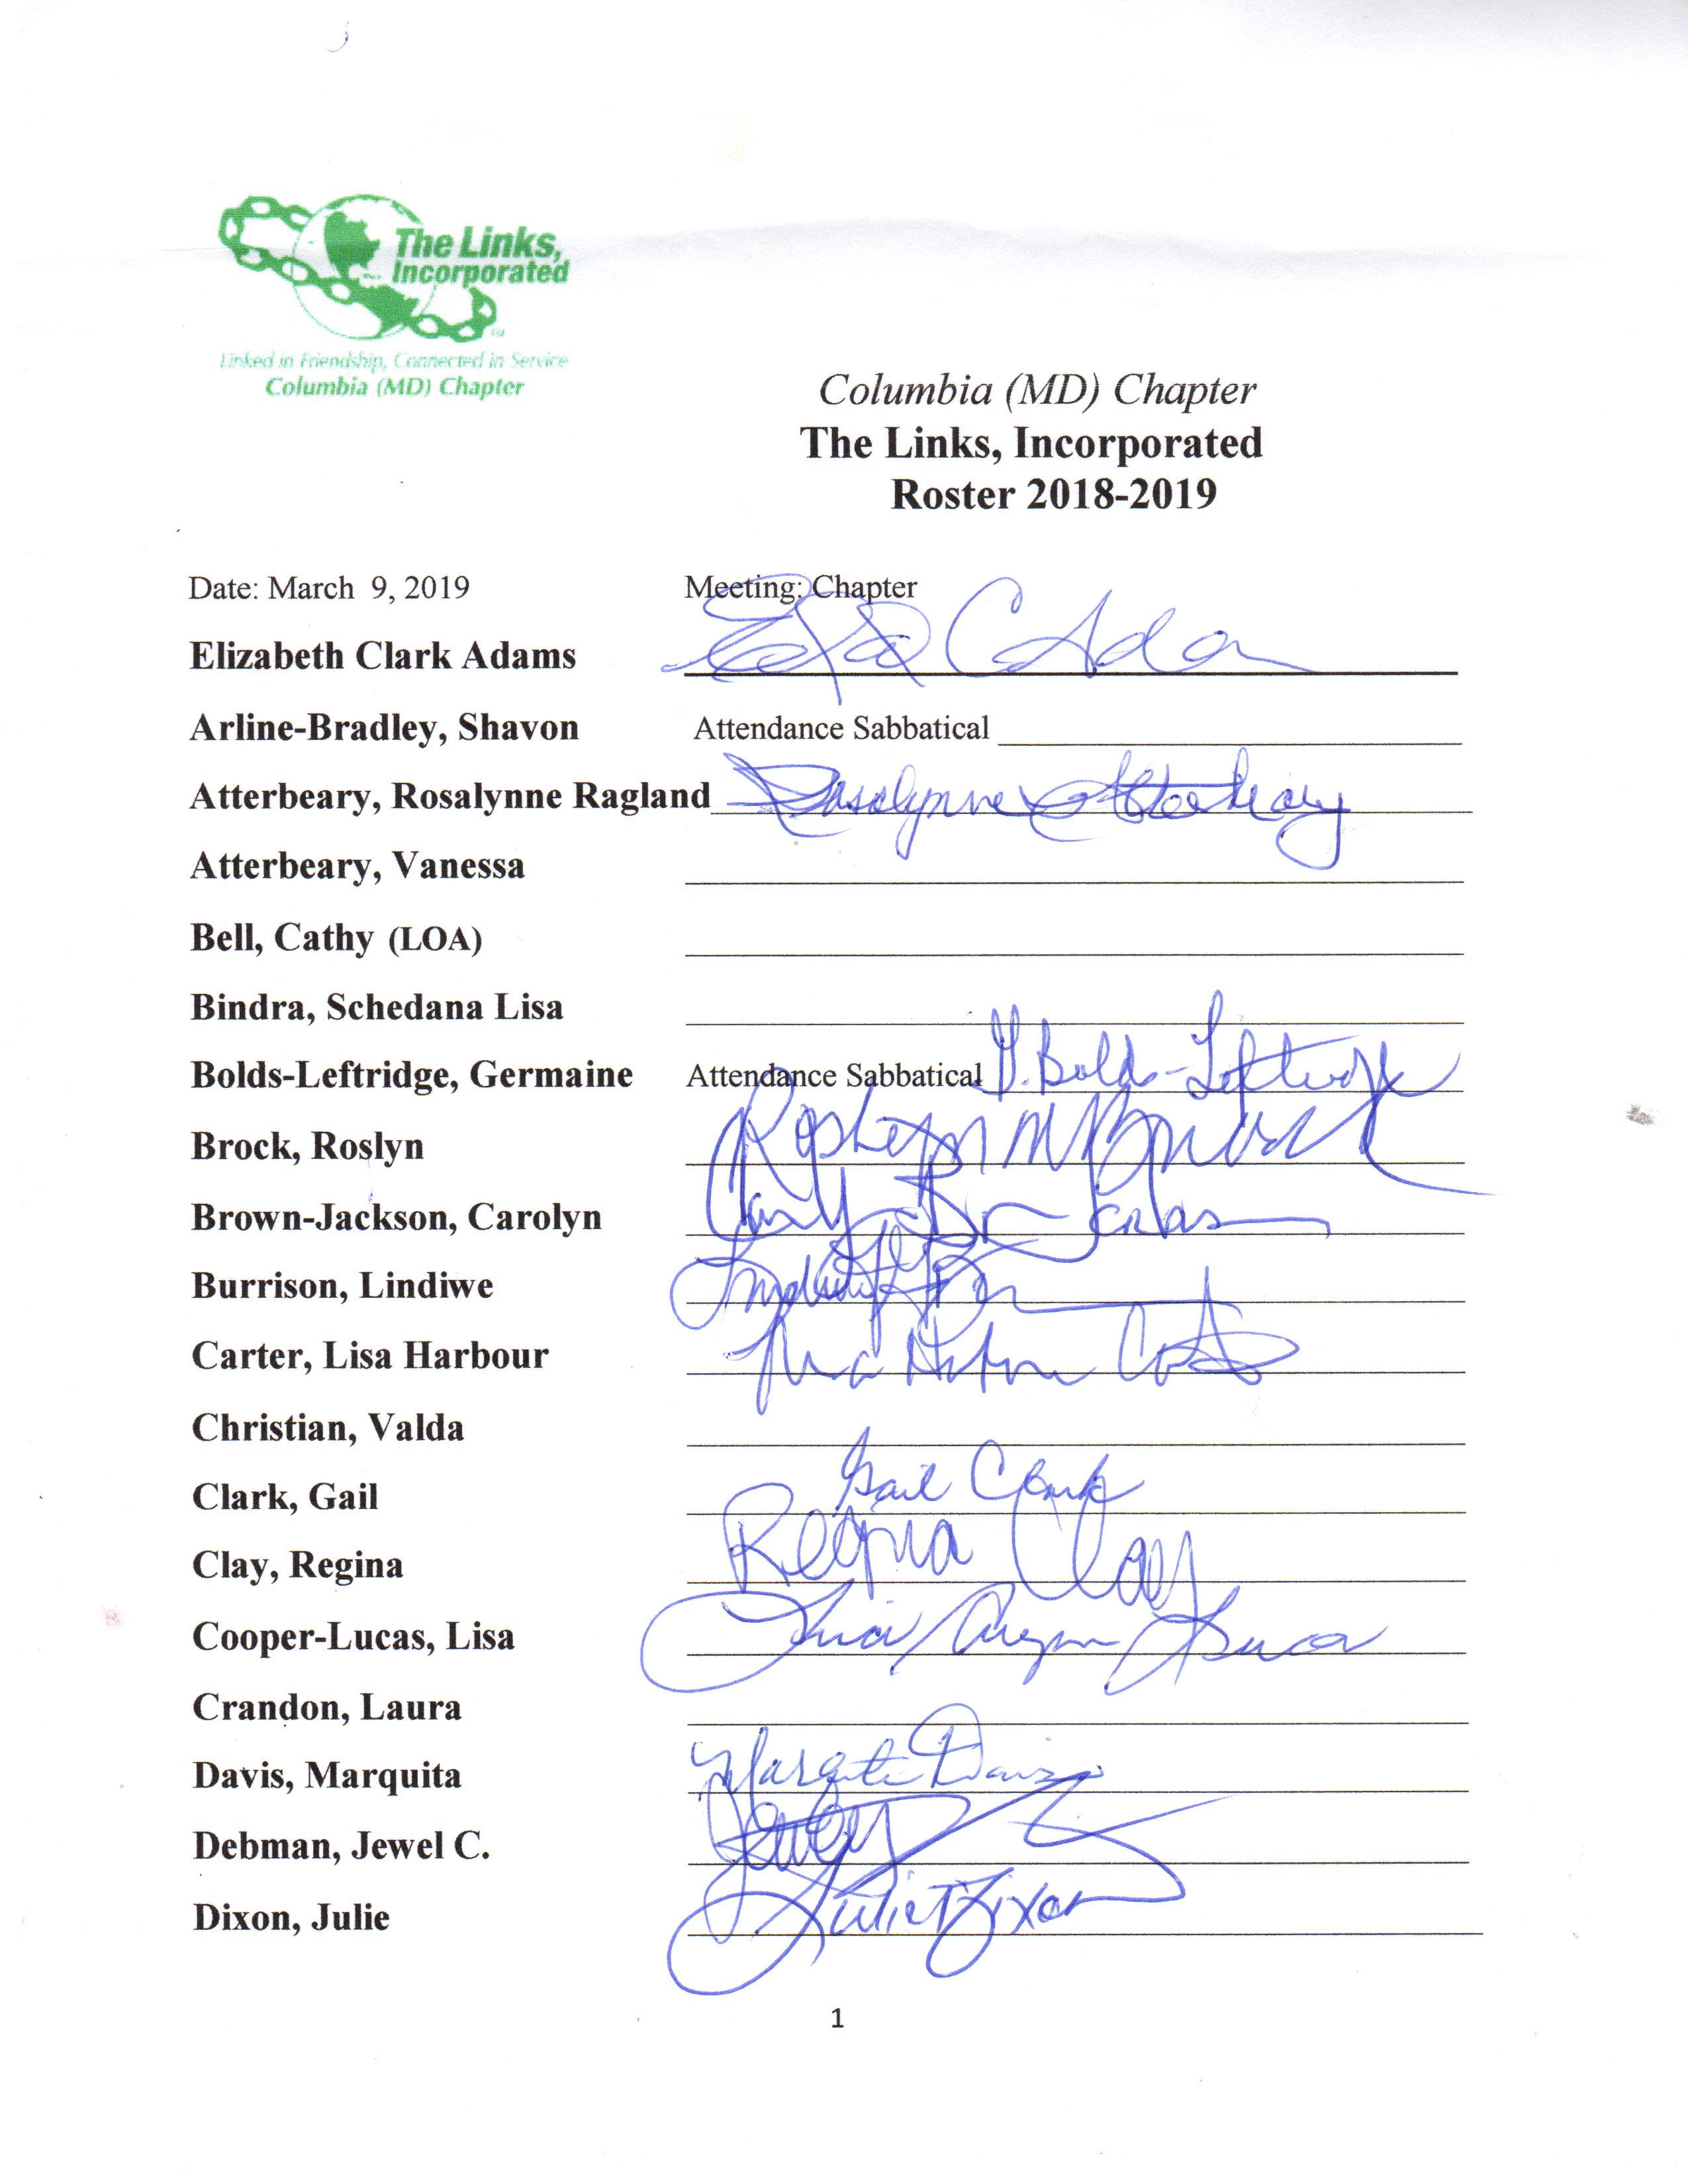 The Links,
Incorporated
Linked in Friendship, Connected in Service
Columbia (MD) Chapter
Columbia (MD) Chapter
The Links, Incorporated
Roster 2018-2019
Date: March 9, 2019 Meeting: Chapter
Elizabeth Clark Adams
Arline-Bradley, Shavon Attendance Sabbatical
Atterbeary, Rosalynne Ragland Rosalynne Atterbeary
Atterbeary, Vanessa
Bell, Cathy (LOA)
Bindra, Schedana Lisa
Bolds-Leftridge, Germaine Attendance Sabbatical G. Bolds-Leftridge
Brock, Roslyn Roslyn M Brock
Brown-Jackson, Carolyn
Burrison, Lindiwe
Carter, Lisa Harbour
Christian, Valda
Clark, Gail Gail Clark
Clay, Regina Regina Clay
Cooper-Lucas, Lisa
Crandon, Laura
Davis, Marquita Marquita Davis
Debman, Jewel C.
Dixon, Julie Julie Dixon
1